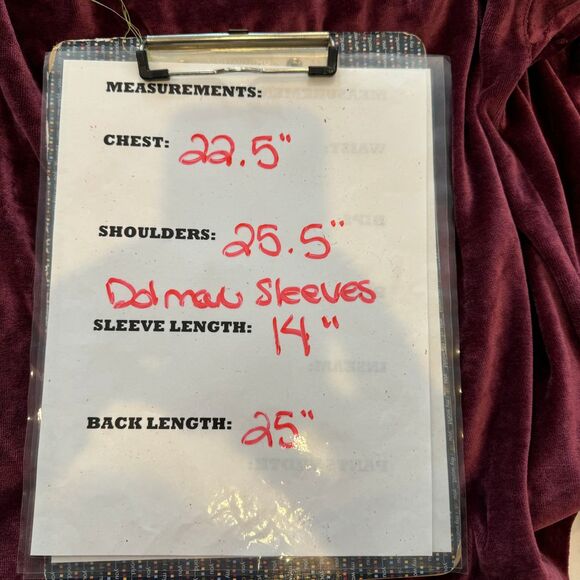 MEASUREMENTS:
CHEST: 22.5"
SHOULDERS: 25.5"
Dolman Sleeves
SLEEVE LENGTH: 14"
BACK LENGTH: 25"